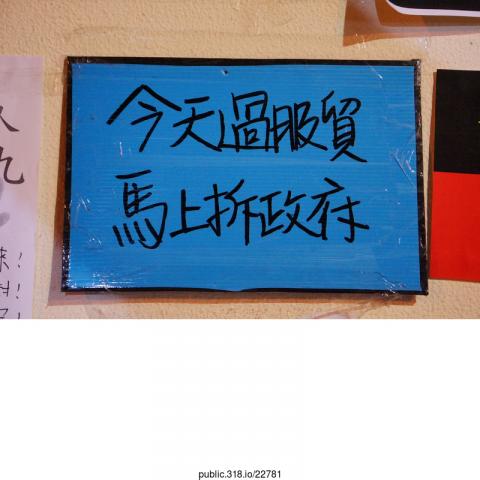 今天過服貿
馬上拆政府
九
!
!
!
public.318.io/22781